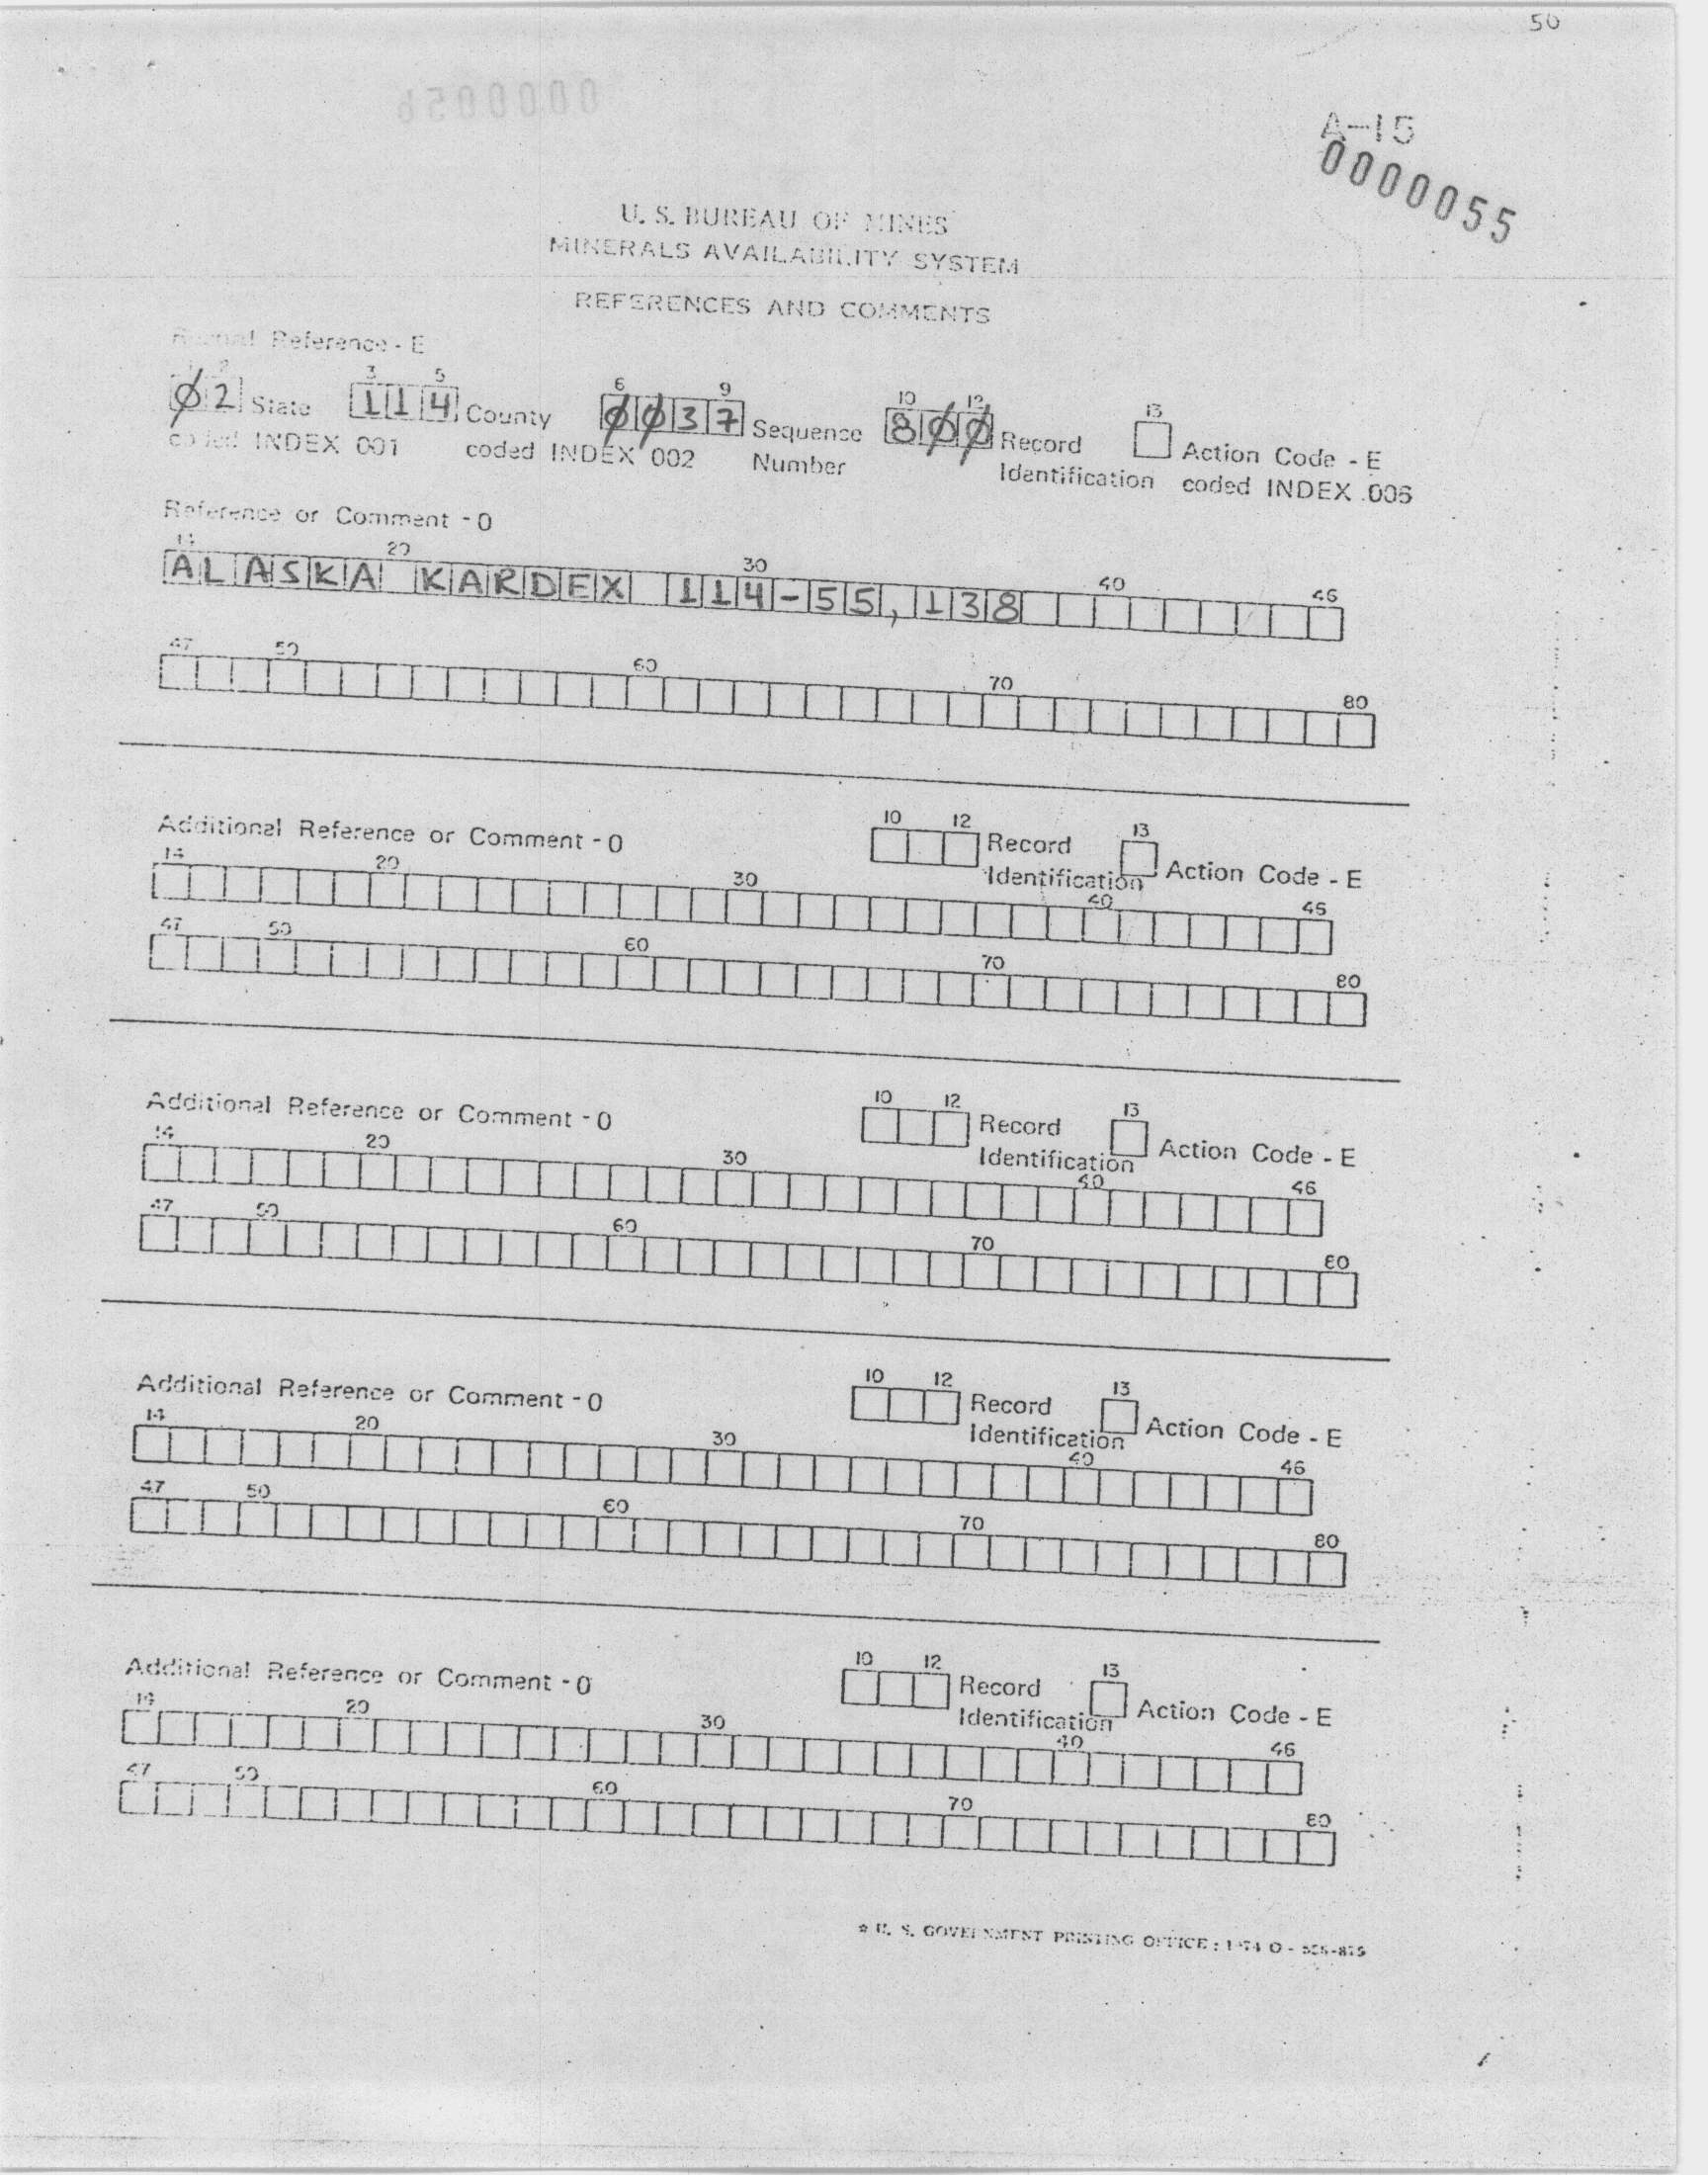 50
A-15
0000055
U. S. BUREAU OF MINES
MINERALS AVAILABILITY SYSTEM
REFERENCES AND COMMENTS
Reference - E
1 2 3 5 6 9 10 12 13
Ø2 State 114 County ØØ37 Sequence 8ØØ Record Action Code - E
coded INDEX 001 coded INDEX 002 Number Identification coded INDEX 006
Reference or Comment - O
14 20 30 40 46
ALASKA KARDEX 114-55,138
47 50 60 70 80
Additional Reference or Comment - O 10 12 Record 13 Action Code - E
Identification
14 20 30 40 46
47 50 60 70 80
Additional Reference or Comment - O 10 12 Record 13 Action Code - E
Identification
14 20 30 40 46
47 50 60 70 80
Additional Reference or Comment - O 10 12 Record 13 Action Code - E
Identification
14 20 30 40 46
47 50 60 70 80
Additional Reference or Comment - O 10 12 Record 13 Action Code - E
Identification
14 20 30 40 46
47 50 60 70 80
☆ U. S. GOVERNMENT PRINTING OFFICE : 1974 O -